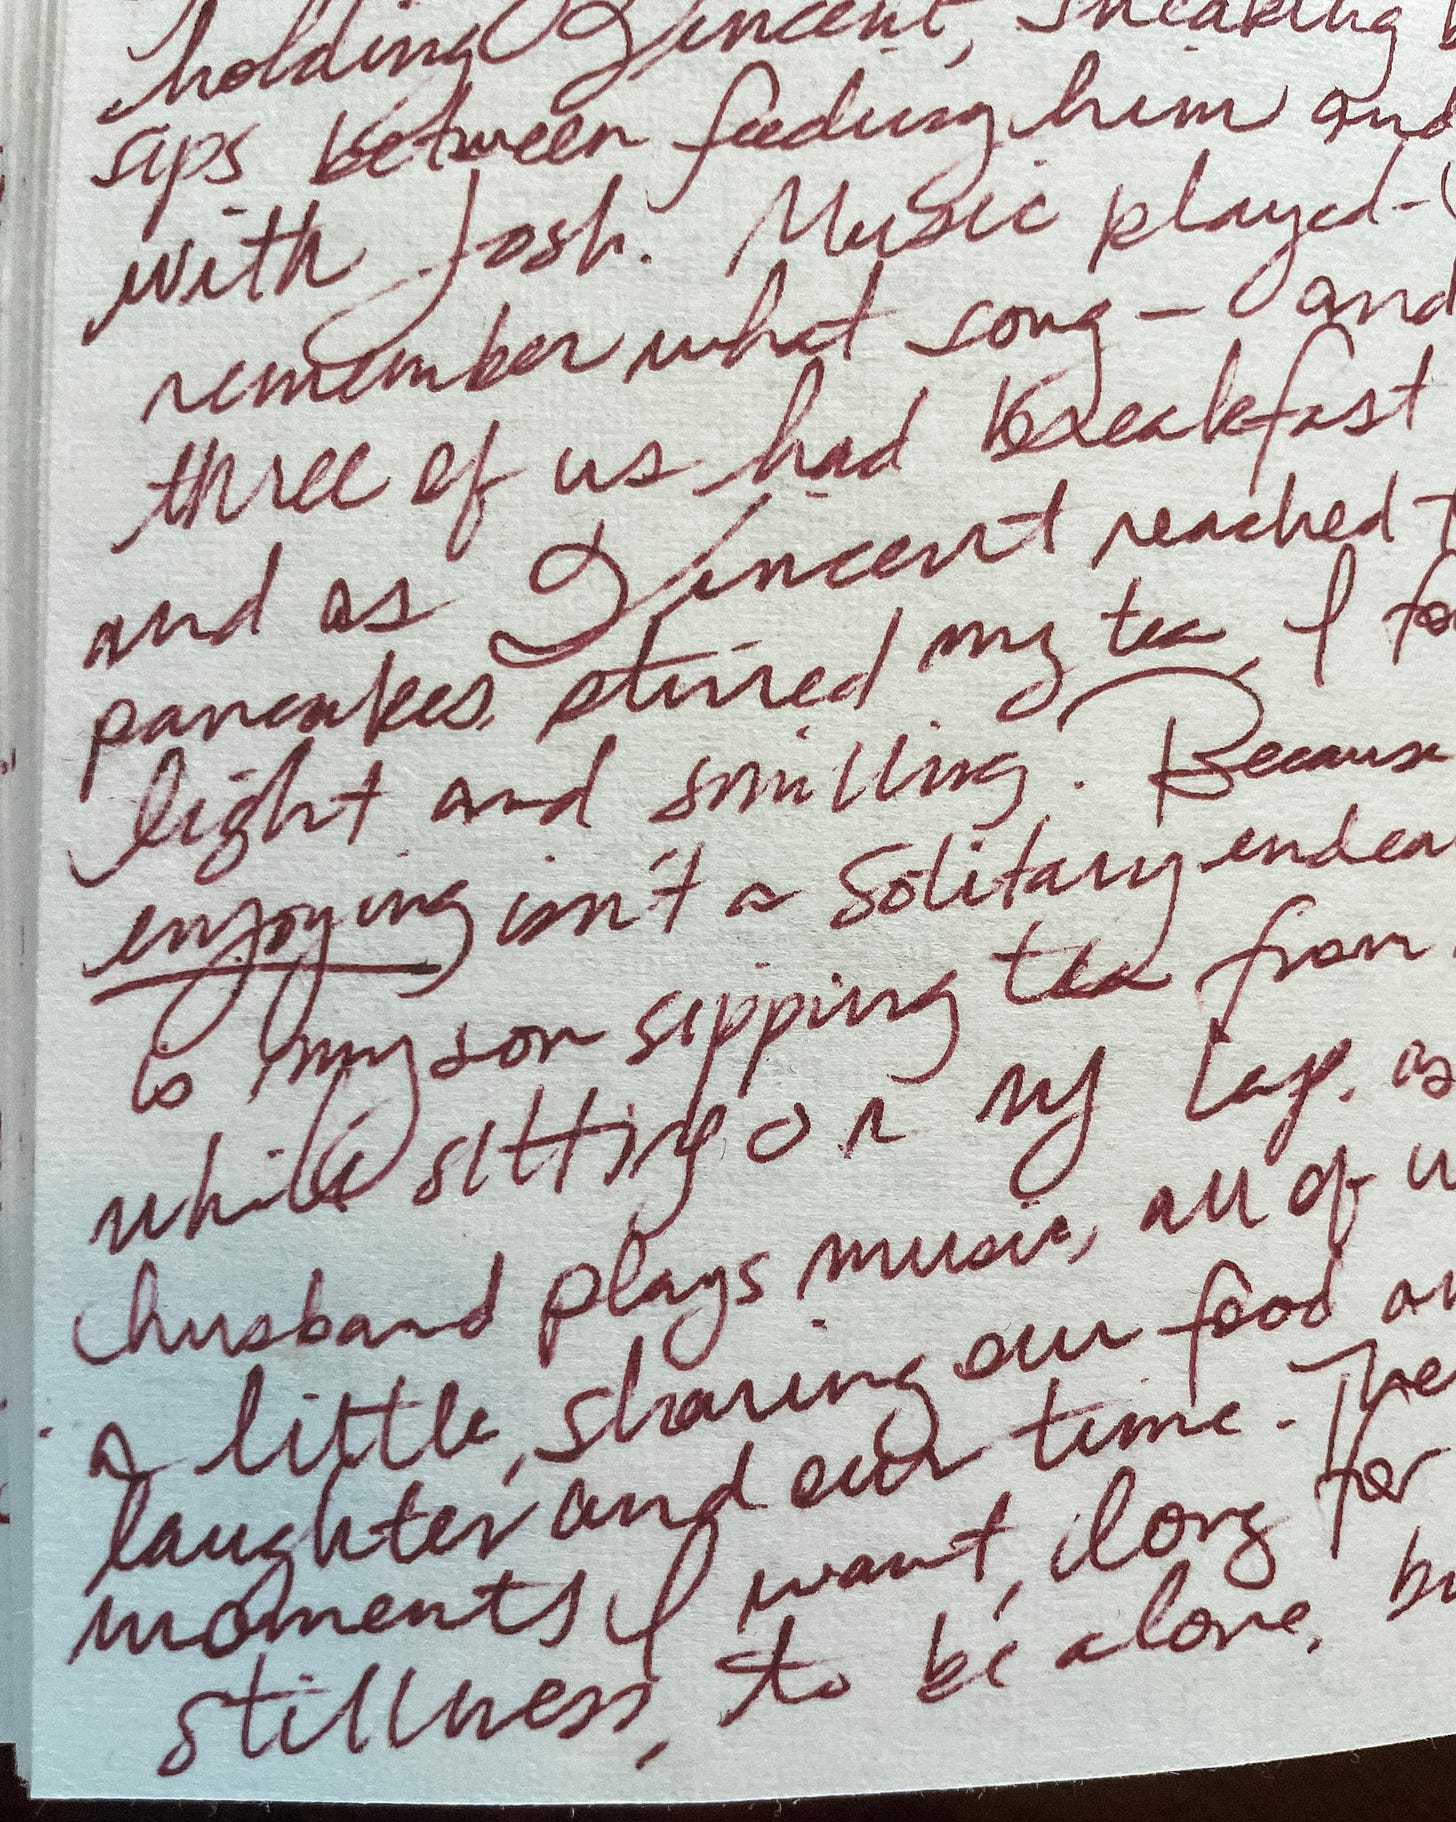 holding Vincent, sneaking
sips between feeding him and
with Josh. Music played-
remember what song - and
three of us had breakfast
and as Vincent reached
pancakes, stirred my tea, I
light and smiling. Because
enjoying isn't a solitary endea
is my son sipping tea from
while sitting on my lap. as
husband plays music, all of u
a little, sharing our food an
laughter and our time. The
moments I want, long for
stillness, to be alone, bu